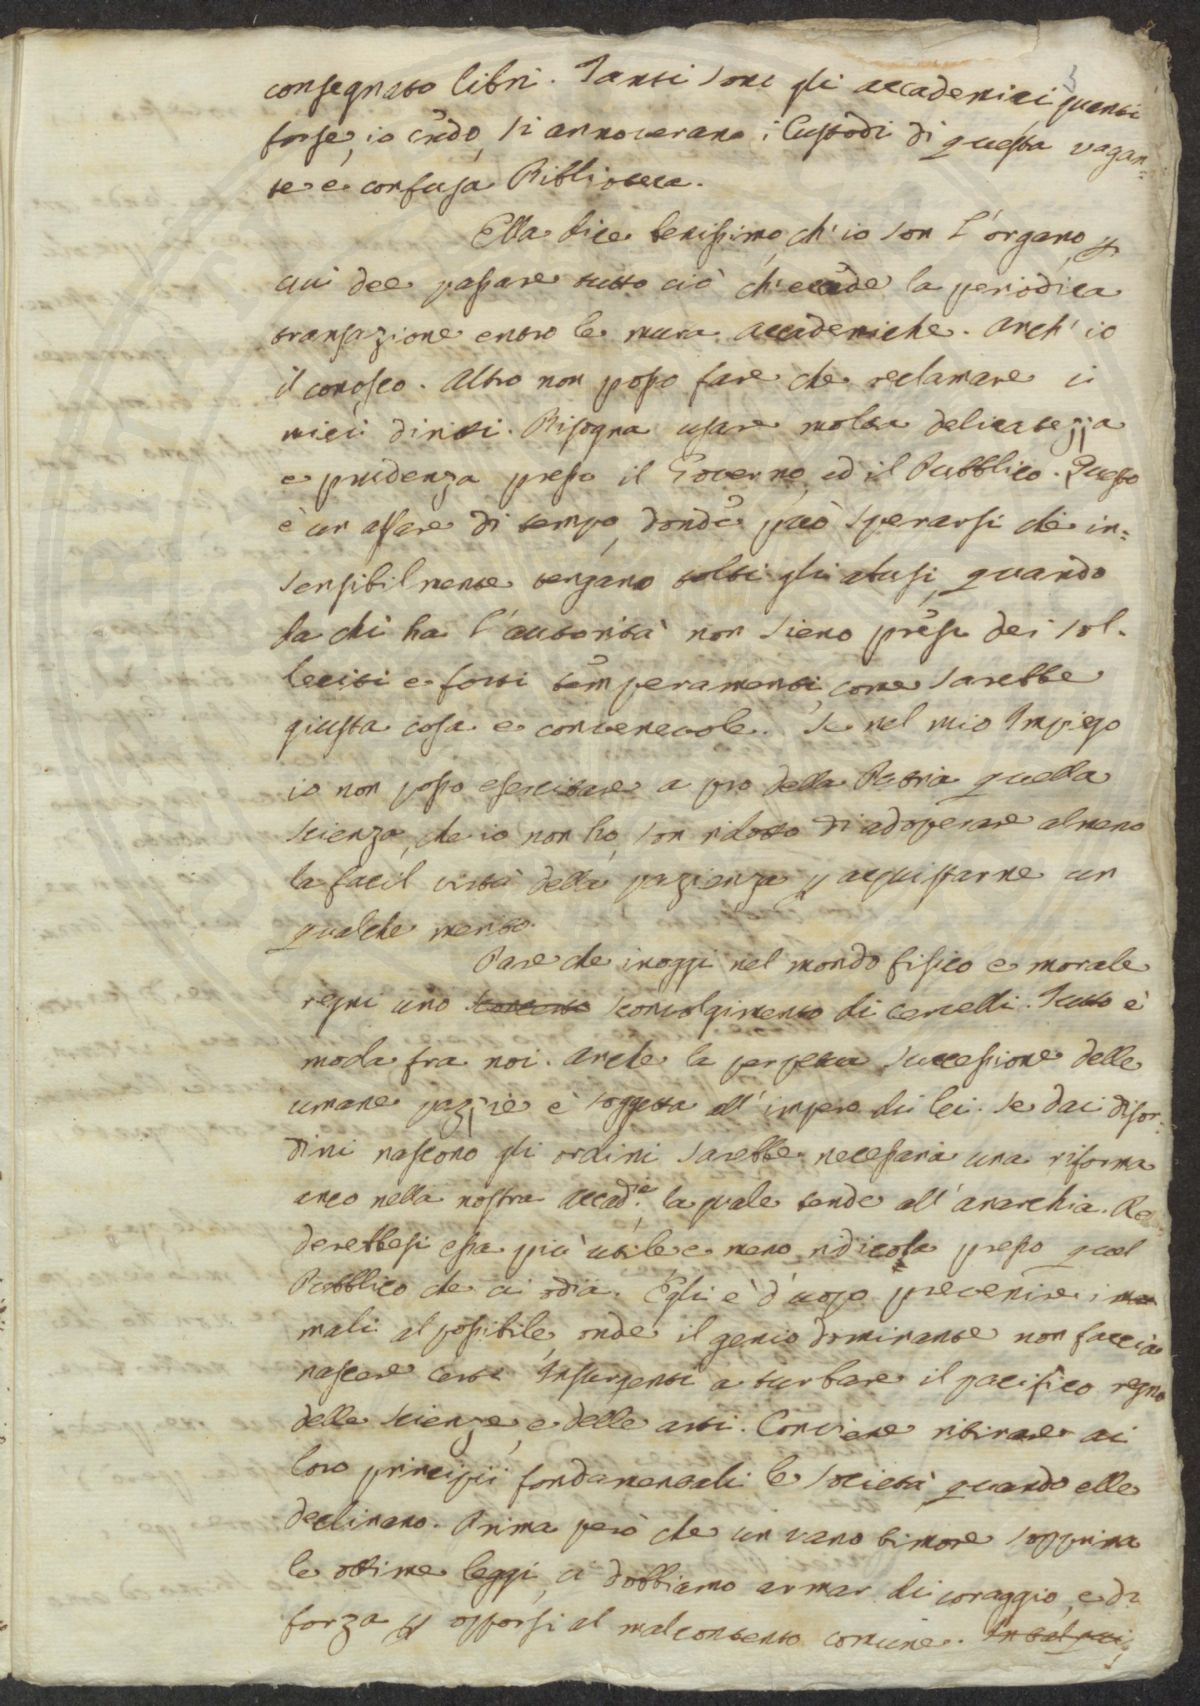 consegnato libri. Tanti sono gli accademici quanti
forse, io credo, si annoverano i Custodi di questa vagan=
te e confusa Biblioteca.
Ella dice benissimo, ch'io son l'organo, p
cui dee passare tutto ciò ch'eccede la periodica
transazione entro le mura accademiche. Anch'io
il conosco. Altro non posso fare che reclamare i
miei diritti. Bisogna usare molta delicatezza
e prudenza presso il Governo, ed il Pubblico. Questo
è un affare di tempo, donde può sperarsi che in=
sensibilmente vengano tolti gli abusi, quando
da chi ha l'autorità non sieno presi dei sol-
leciti e forti temperamenti, come sarebbe
giusta cosa e convenevole. Se nel mio Impiego
io non posso esercitare a pro della Patria quella
scienza, che io non ho, son ridotto di adoperare almeno
la facil virtù della pazienza p acquistarne un
qualche merito.
Pare che inoggi nel mondo fisico e morale
regni uno sconvolgimento di cervelli. Tutto è
moda fra noi. Anche la perpetua successione delle
umane pazzie è soggetta all'impero di lei. Se dai disor=
dini nascono gli ordini sarebbe necessaria una riforma
anco nella nostra Accad.ia la quale tende all'anarchia. Re
derebbesi essa più utile e meno ridicola presso quel
Pubblico che ci odia. Egli è d'uopo prevenire i
mali al possibile, onde il genio dominante non faccia
nascere certi Insurgenti a turbare il pacifico regno
delle scienze, e delle arti. Conviene ritirare ai
loro principii fondamentali le società quando elle
declinano. Prima però che un vano timore sopprima
le ottime leggi, ci dobbiamo armar di coraggio, e di
forza p opporsi al malcontento comune.